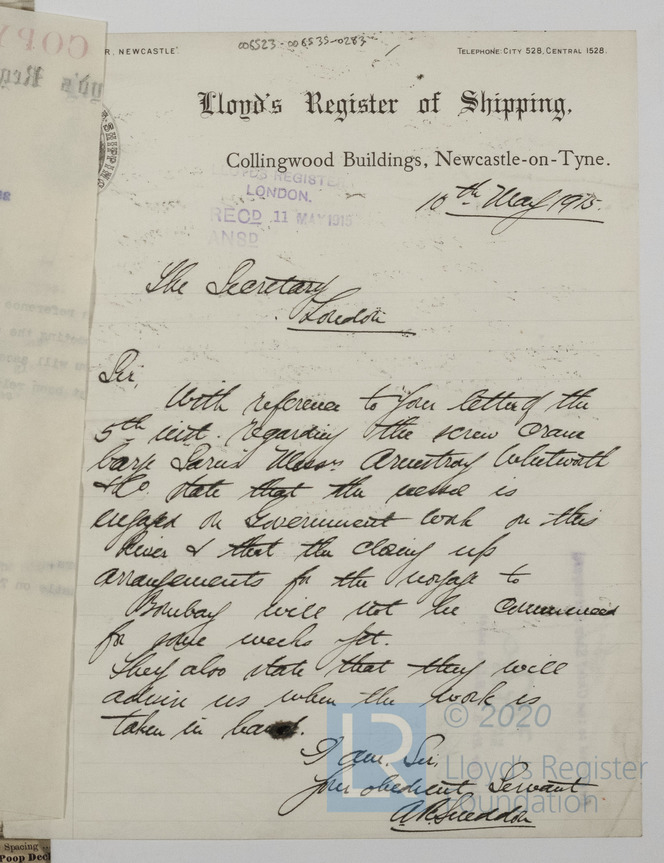 R, NEWCASTLE.
006523-006535-0283
TELEPHONE: CITY 528, CENTRAL 1528.
COPY
Lloyd's Register of Shipping,
Collingwood Buildings, Newcastle-on-Tyne.
LLOYD'S REGISTER
LONDON.
RECD 11 MAY 1915
ANSD
10th May 1915.
The Secretary
London
Sir,
With reference to your letter of the
5th inst. regarding the screw crane
barge Messrs Armstrong Whitworth
& Co. state that the vessel is
engaged on Government work on this
River & that the closing up
arrangements for the voyage to
Bombay will not be commenced
for some weeks yet.
They also state that they will
advise us when the work is
taken in hand.
I am, Sir,
Your obedient Servant
© 2020
LR
Lloyd's Register
Foundation
Spacing
Poop Dec